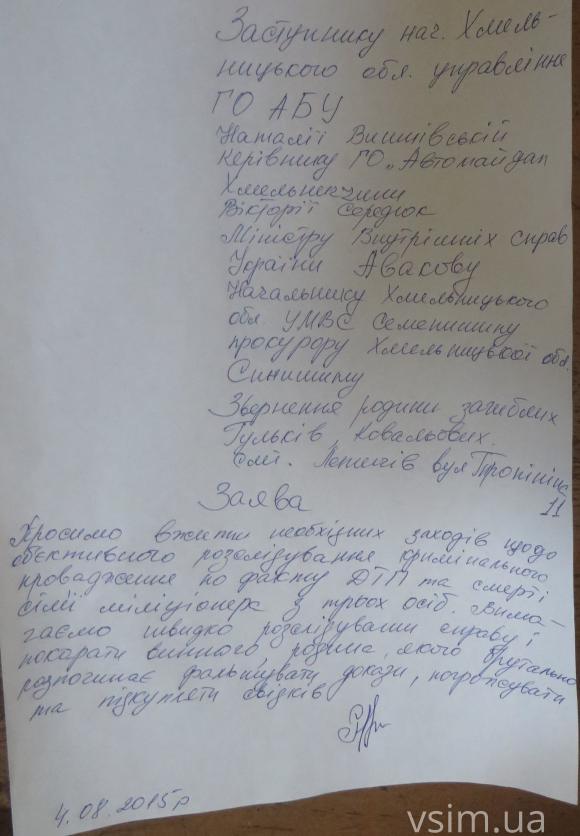 Заступнику нач. Хмель-
ницького обл. управління
ГО АБУ
Наталії Вишнівській
Керівнику ГО „Автомайдан
Хмельниччини
Вікторії Середюк
Міністру Внутрішніх справ
України Авакову
Начальнику Хмельницького
обл. УМВС Семенишину
прокурору Хмельницької обл.
Синишину
Звернення родини загиблих
Гульків Ковальових.
смт. Летичів вул Тропініна
11
Заява
Просимо вжити необхідних заходів щодо
об'єктивного розслідування кримінального
провадження по факту ДТП та смерті
сім'ї міліціонера з трьох осіб. Вима-
гаємо швидко розслідувати справу і
покарати винного родина якого брутально
розпочинає фальшувати докази, погрожувати
та підкупляти свідків
4.08.2015р
vsim.ua